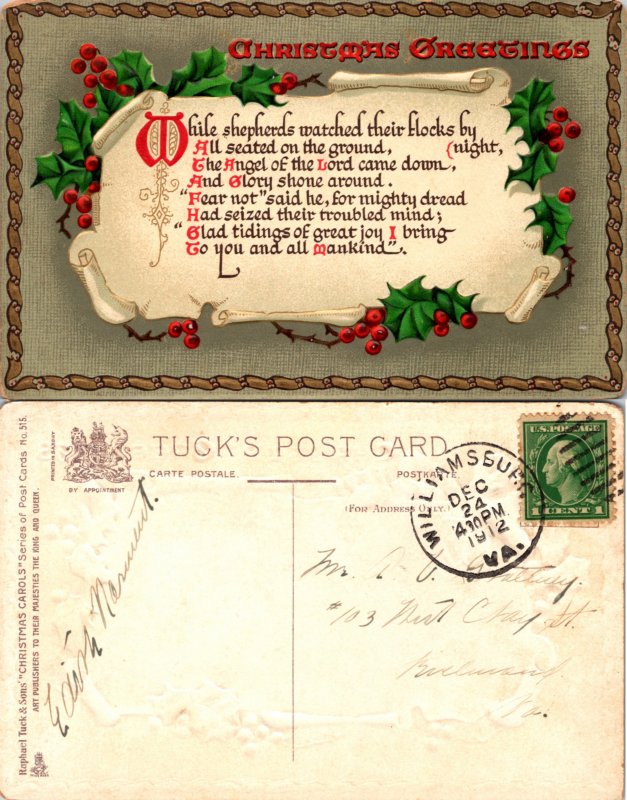 Christmas Greetings
While shepherds watched their flocks by
All seated on the ground, (night,
The Angel of the Lord came down,
And Glory shone around.
"Fear not" said he, for mighty dread
Had seized their troubled mind;
"Glad tidings of great joy I bring
To you and all Mankind".
TUCK'S POST CARD
CARTE POSTALE. POSTKARTE.
(For Address Only.)
BY APPOINTMENT
PRINTED IN SAXONY
Raphael Tuck & Sons' "CHRISTMAS CAROLS" Series of Post Cards No. 515.
ART PUBLISHERS TO THEIR MAJESTIES THE KING AND QUEEN.
Edith Norment.
WILLIAMSBURG
DEC
24
4 30 PM
1912
VA.
U.S. POSTAGE
1 CENT 1
Mr.
#103 West Clay St.
Richmond
Va.